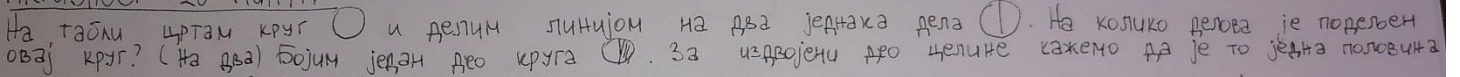 На табли цртам круг и делим линијом на два једнака дела. На колико делова је подељен
овај круг? (На два) Бојим један део круга. За издвојени део целине кажемо да је то једна половина